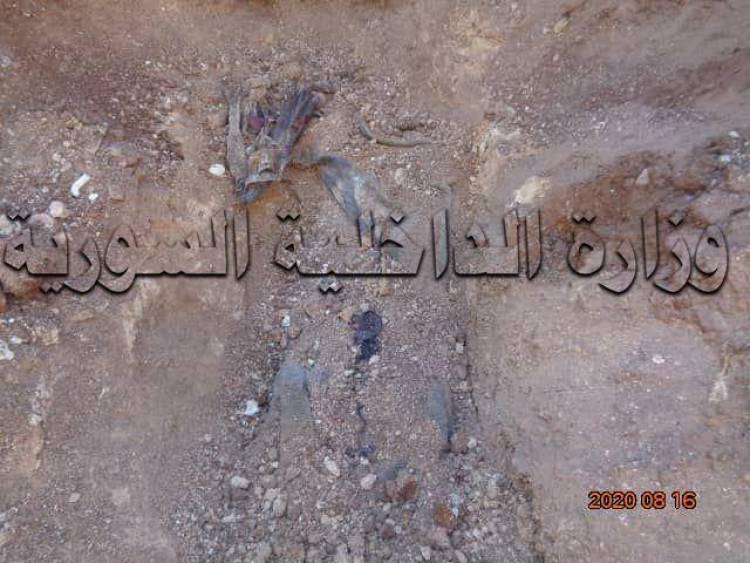 وزارة الداخلية السورية
2020 08 16